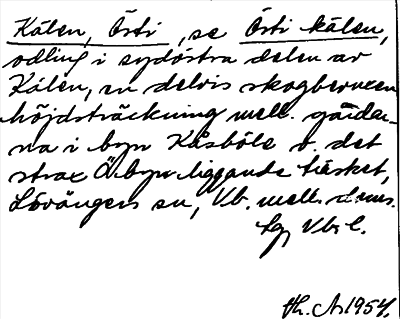 Kålen, Östi, se Östi kålen,
odling i sydöstra delen av
Kålen, en delvis skogbevuxen
höjdsträckning mell. gårdar-
na i byn Kåsböle o. det
strax Ö. byn liggande träsket,
Lövångers sn, Vb. mell. d:ms.
lg, Vb. l.
th. A. 1954.